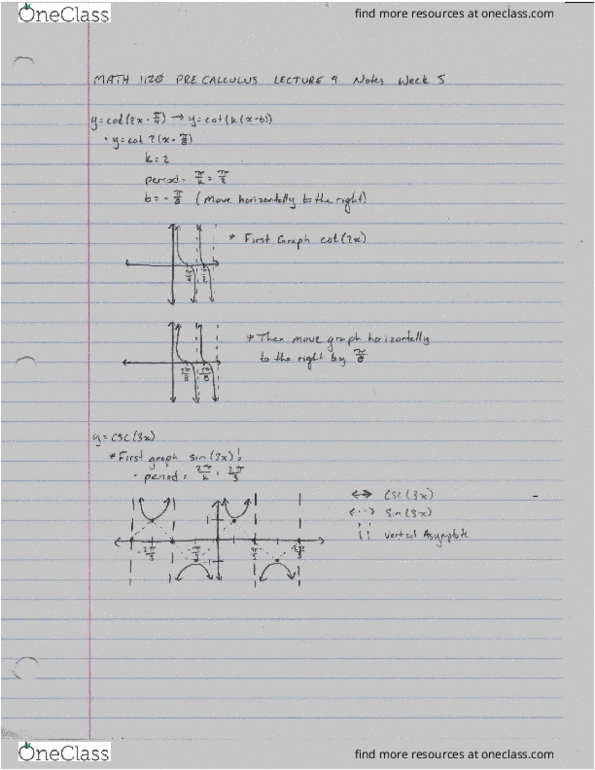 OneClass find more resources at oneclass.com
MATH 1120 PRECALCULUS LECTURE 9 Notes Week 5
y=cot(2x - π/4) → y=cot(k(x-b))
• y=cot 2(x - π/8)
k=2
period = π/k = π/2
b = - π/8 (move horizontally to the right)
* First Graph cot(2x)
π/4 π/2
* Then move graph horizontally
to the right by π/8
y = csc(3x)
* First graph sin(3x)!
- period = 2π/k = 2π/3
↔ csc(3x)
<··> sin(3x)
¦¦ vertical Asymptote
1
-2π/3 -π/3 π/3 2π/3
OneClass find more resources at oneclass.com